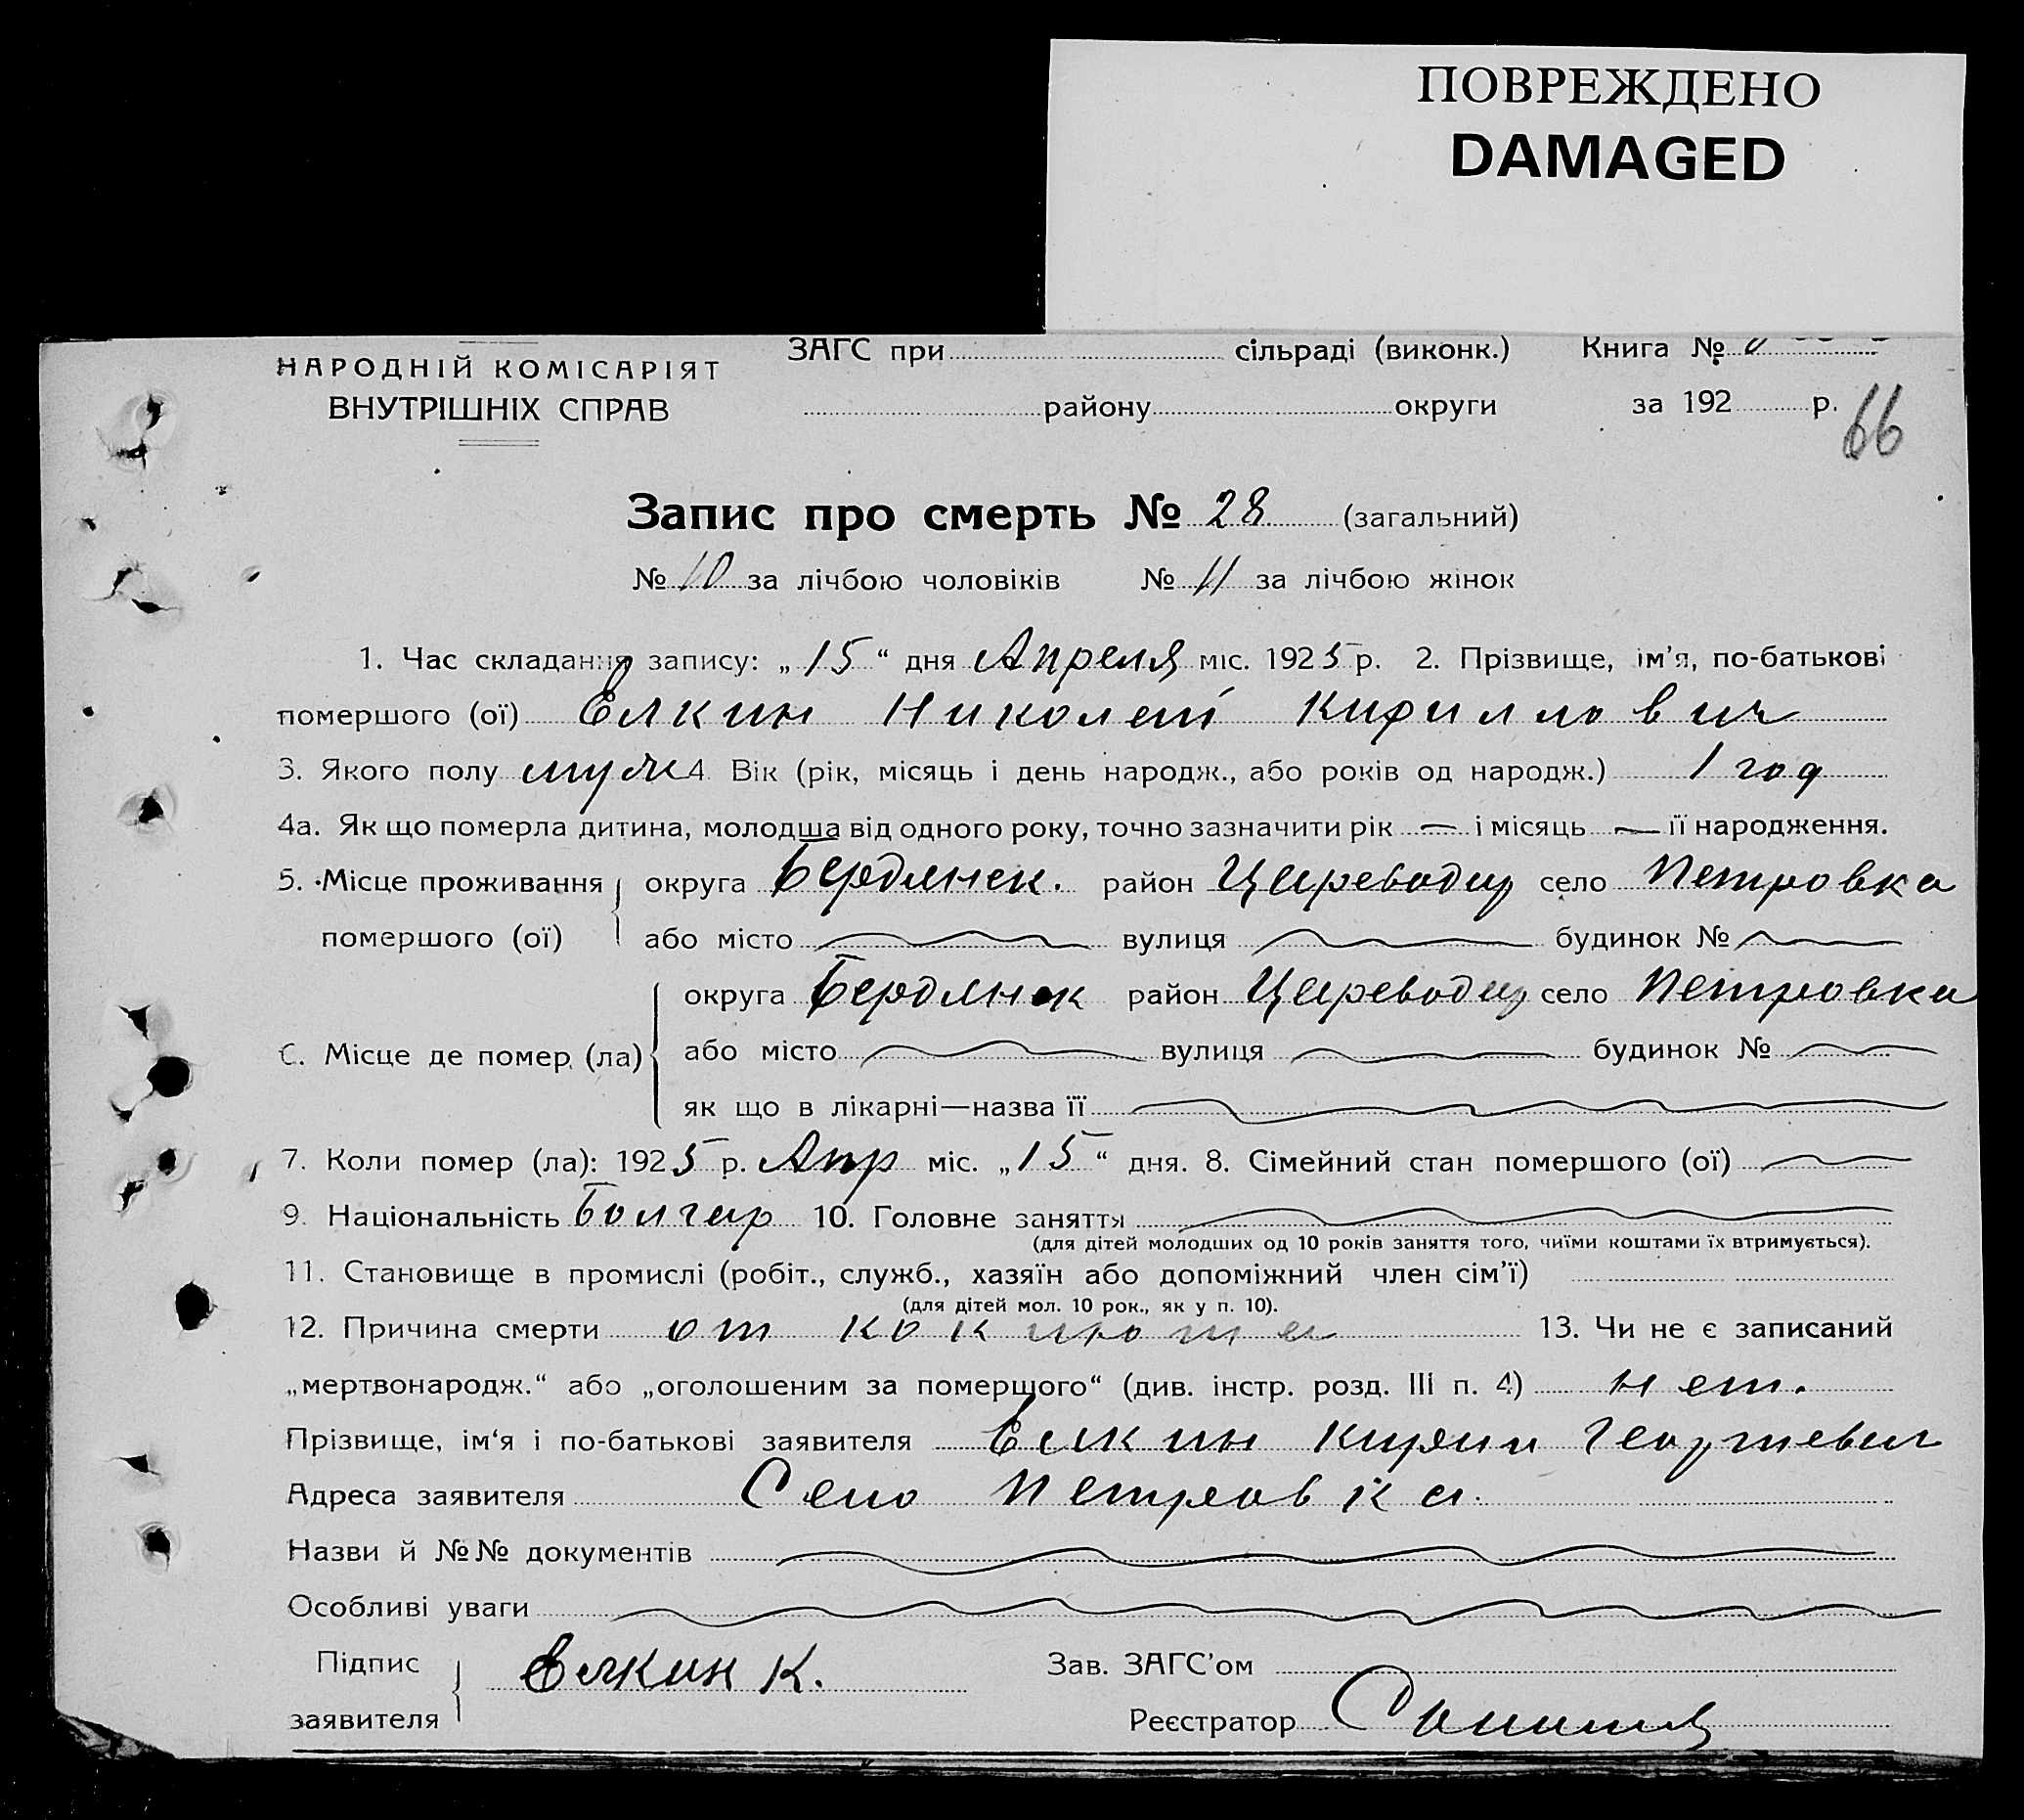 ПОВРЕЖДЕНО
DAMAGED
НАРОДНІЙ КОМІСАРІЯТ
ВНУТРІШНІХ СПРАВ
ЗАГС при сільраді (виконк.) Книга №
району округи за 192 р.
66
Запис про смерть № 28 (загальний)
№ 10 за лічбою чоловіків № 11 за лічбою жінок
1. Час складання запису: „15“ дня Апреля міс. 1925 р. 2. Прізвище, ім'я, по-батькові
помершого (ої) Елкин Николай Кириллович
3. Якого полу муж 4. Вік (рік, місяць і день народж., або років од народж.) 1 год
4а. Як що померла дитина, молодша від одного року, точно зазначити рік — і місяць — її народження.
5. Місце проживання округа Бердянск. район Цареводар село Петровка
помершого (ої) або місто вулиця будинок №
округа Бердянск район Цареводар село Петровка
6. Місце де помер (ла) або місто вулиця будинок №
як що в лікарні—назва її
7. Коли помер (ла): 1925 р. Апр міс. „15“ дня. 8. Сімейний стан помершого (ої)
9. Національність Болгар 10. Головне заняття
(для дітей молодших од 10 років заняття того, чиїми коштами їх втримується).
11. Становище в промислі (робіт., служб., хазяїн або допоміжний член сім'ї)
(для дітей мол. 10 рок., як у п. 10).
12. Причина смерти от 13. Чи не є записаний
„мертвонародж.“ або „оголошеним за померщого“ (див. інстр. розд. III п. 4) нет.
Прізвище, ім'я і по-батькові заявителя Елкин Кирил Георгиевич
Адреса заявителя Село Петровка.
Назви й №№ документів
Особливі уваги
Підпис Елкин К. Зав. ЗАГС'ом
заявителя Реєстратор